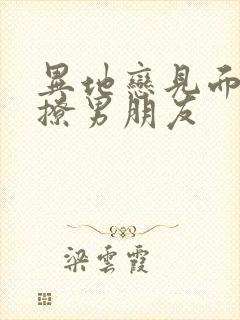 異地戀見而
撩男朋友
梁雲霞